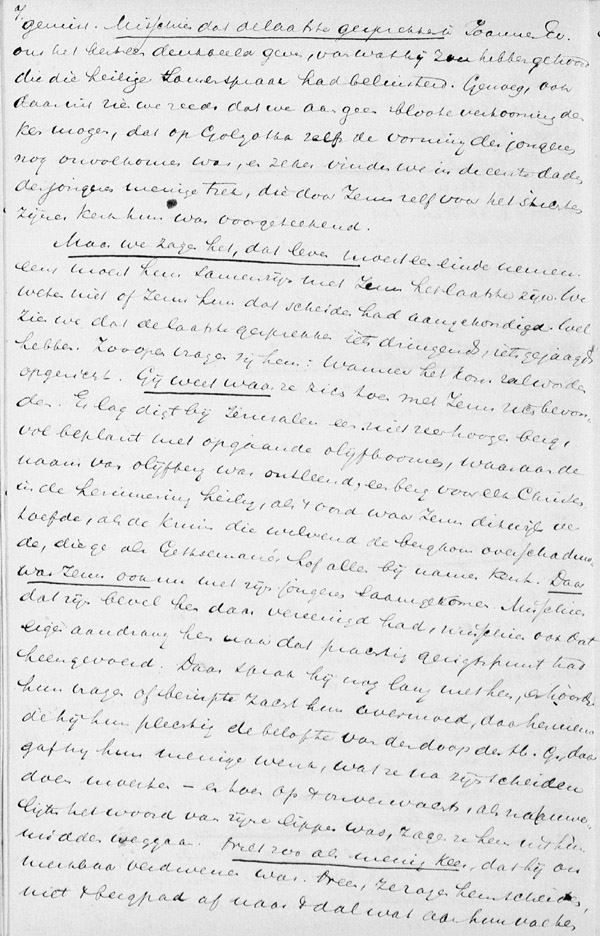 gemist. Misschien dat de laatste gesprekken in Joannes Ev.
ons het beste denkbeeld geven, van wat hij zou hebben gehoord
die die heilige samenspraak had beluisterd. Genoeg, ook
daaruit zien we reeds dat we aan geen bloote verhooring den
ken mogen, dat op Golgotha zelfs de vorming der jongeren
nog onvolkomen was, en zeker vinden we in de eerste daden
der jongeren menige trek, die door Jezus zelf voor het stichten
zijner kerk hun was voorgeteekend.
Maar we zagen het, dat leven moest een einde nemen.
eens moest hun samenzijn met Jezus het laatste zijn. We
weten niet of Jezus hun dat scheiden had aangekondigd. Wel
zien we dat de laatste gesprekken iets dringends, iets gejaagds
hebben. Zoo open vragen zij hem: Wanneer het kon. zal worden
opgericht. Gij weet waar ze zich toen met Jezus bevon
den. Er lag digt bij Jerusalem een niet zeer hooge berg,
vol beplant met opgaande olijfboomen, waaraan de
naam van olijfberg was ontleend, een berg voor elk Christen
in de herinnering heilig, als 't oord waar Jezus dikwijls ve
toefde, als de kruin die welvend de berghom overschaduw
de, die ge als Gethsemané's hof allen bij name kent. Daar
was Jezus ook nu met zijn jongeren saamgekomen. Misschien
dat zijn bevel hen daar vereenigd had, misschien ook dat
eigen aandrang hen naar dat prachtig gezigtspunt had
heengevoerd. Daar sprak hij nog lang met hen, en hoorde
hun vragen of berispte zacht hun overmoed, daar hernieuw
de hij hun plechtig de belofte van den doop des H. G., daar
gaf hij hun menige wenk, wat ze na zijn scheiden
doen moesten – en toen op 't onverwachts, als nauwe
lijks het woord van zijne lippen was, zagen ze hem uit hun
midden weggaan. Niet zoo als menig keer, dat hij on
merkbaar verdwenen was. Neen, ze zagen hem scheiden,
niet 't bergpad af naar 't dal wat aan hun voeten